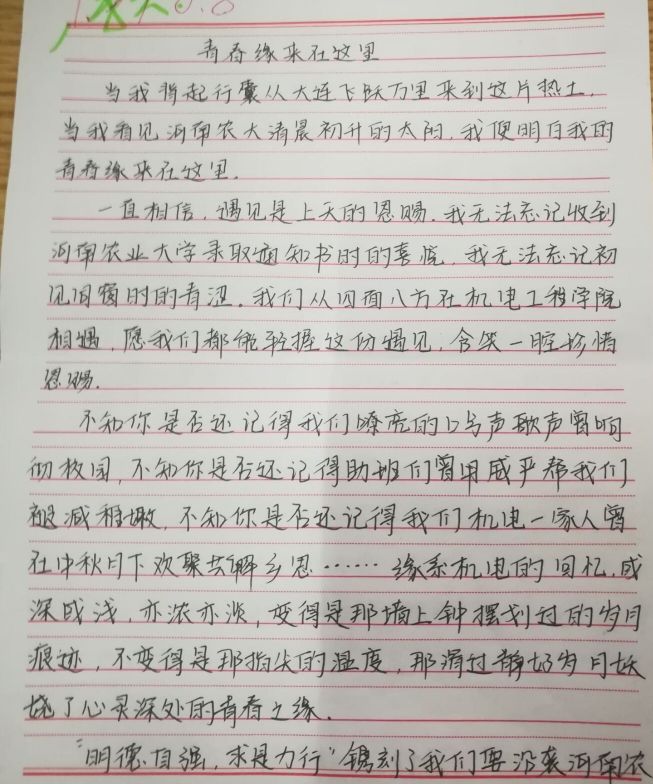 青春缘来在这里
当我背起行囊从大连飞跃万里来到这片热土,
当我看见河南农大清晨初升的太阳,我便明白我的
青春缘来在这里.
一直相信,遇见是上天的恩赐.我无法忘记收到
河南农业大学录取通知书时的喜悦,我无法忘记初
见同窗时的青涩.我们从四面八方在机电工程学院
相遇,愿我们都能轻握这份遇见,含笑一腔珍惜
恩赐.
不知你是否还记得我们嘹亮的口号声歌声曾响
彻校园,不知你是否还记得助班们曾用威严帮我们
褪减稚嫩,不知你是否还记得我们机电一家人曾
在中秋月下欢聚共解乡思……缘系机电的回忆,或
深或浅,亦浓亦淡,变得是那墙上钟摆划过的岁月
痕迹,不变得是那指尖的温度,那滑过静好岁月妖
娆了心灵深处的青春之缘.
"明德自强,求是力行"镌刻了我们要沿袭河南农